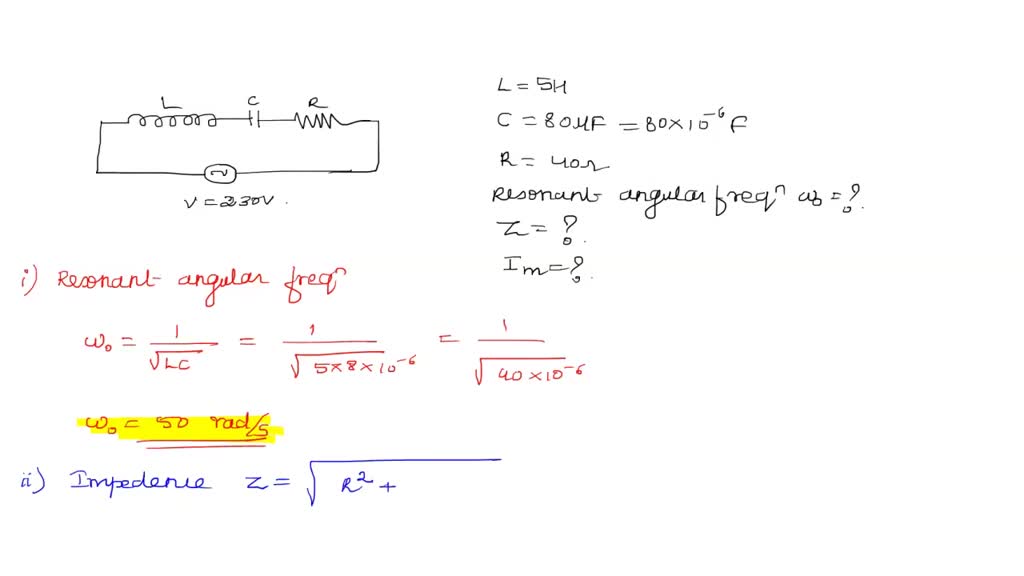 L C R
V = 230V.
L = 5H
C = 80μF = 80×10⁻⁶ F
R = 40Ω
Resonant angular freqⁿ ω₀ = ?.
Z = ?.
Im = ?.
i) Resonant angular freqⁿ
ω₀ = 1/√LC = 1/√5×8×10⁻⁶ = 1/√40×10⁻⁶
ω₀ = 50 rad/s
ii) Impedence Z = √R² +